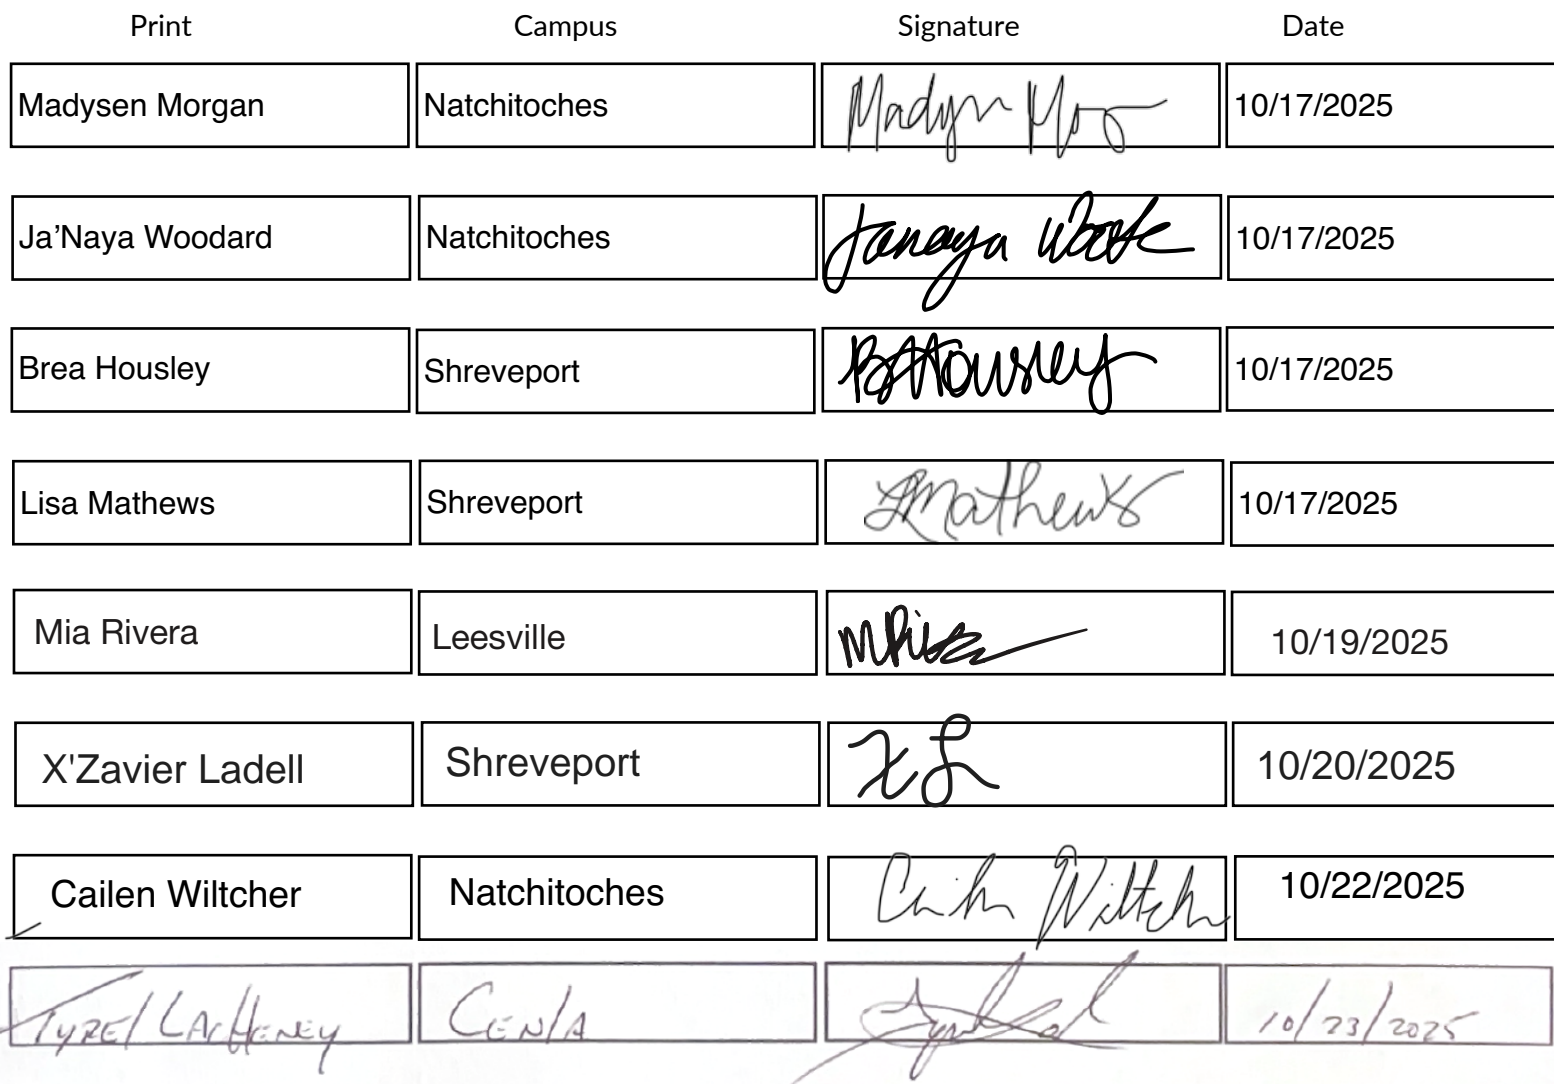 Print Campus Signature Date
Madysen Morgan Natchitoches Madysn Mor 10/17/2025
Ja’Naya Woodard Natchitoches Janaya 10/17/2025
Brea Housley Shreveport BHousley 10/17/2025
Lisa Mathews Shreveport LMathews 10/17/2025
Mia Rivera Leesville 10/19/2025
X'Zavier Ladell Shreveport X L 10/20/2025
Cailen Wiltcher Natchitoches 10/22/2025
Tyrel LaCHeney CENlA 10/23/2025